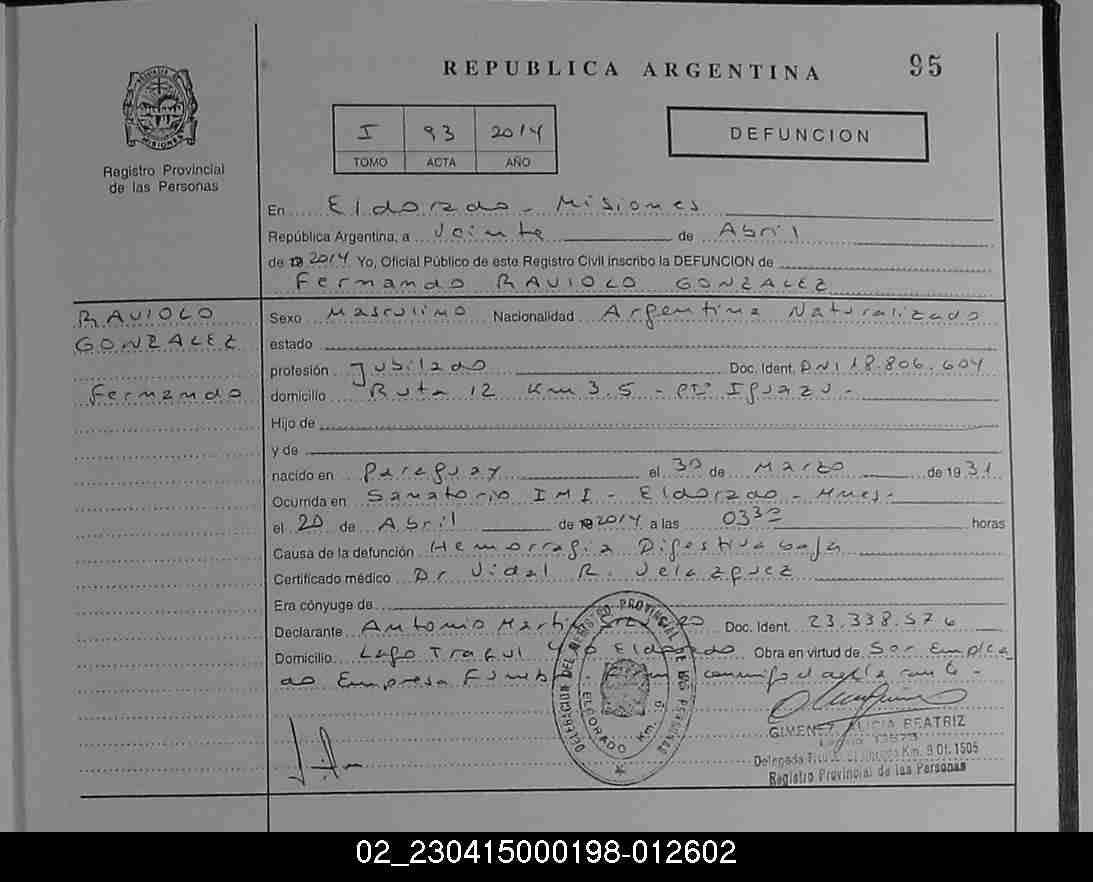 REPUBLICA ARGENTINA
95
MISIONES
Registro Provincial
de las Personas
I 93 2014
TOMO ACTA AÑO
DEFUNCION
En Eldorado - Misiones
República Argentina, a Veinte de Abril
de 19 2014 Yo, Oficial Público de este Registro Civil inscribo la DEFUNCION de
Fernando RAVIOLO GONZALEZ
RAVIOLO
GONZALEZ
Fernando
Sexo Masculino Nacionalidad Argentino Naturalizado
estado
profesión Jubilado Doc. Ident. DNI 18.806.604
domicilio Ruta 12 Km 3.5 - Pto Iguazu -
Hijo de
y de
nacido en Paraguay el 30 de Marzo de 1931
Ocurrida en Sanatorio IMI - Eldorado - Mnes.
el 20 de Abril de 19 2014 a las 0330 horas
Causa de la defunción Hemorragia Digestiva baja
Certificado médico Dr Vidal R. Velazquez
Era cónyuge de
Declarante Antonio Martin Doc. Ident. 23.338.576
Domicilio Lago Eldorado Obra en virtud de Ser Emplea
do Empresa Funebre
DELEGACION DEL REGISTRO PROVINCIAL DE LAS PERSONAS
ELDORADO Km. 9
GIMENEZ, ALICIA BEATRIZ
Delegada Titular Km. 9 Of. 1505
Registro Provincial de las Personas
02_230415000198-012602